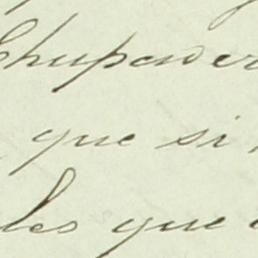 Chupader
que si
les que